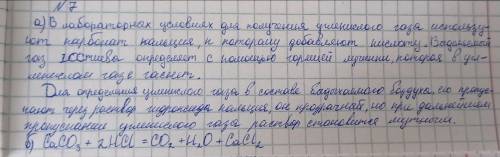 №7
а) В лабораторных условиях для получения углекислого газа использу-
ют карбонат кальция, к которому добавляют кислоту.
газ определяют с помощью горящей лучины, которая в уг-
лекислом газе гаснет.
Для определения углекислого газа в составе выдыхаемого воздуха, его пропус-
кают через раствор гидроксида кальция, он прозрачный, но при дальнейшем
пропускании углекислого газа раствор становится мутным.
б) CaCO₃ + 2HCl = CO₂ + H₂O + CaCl₂